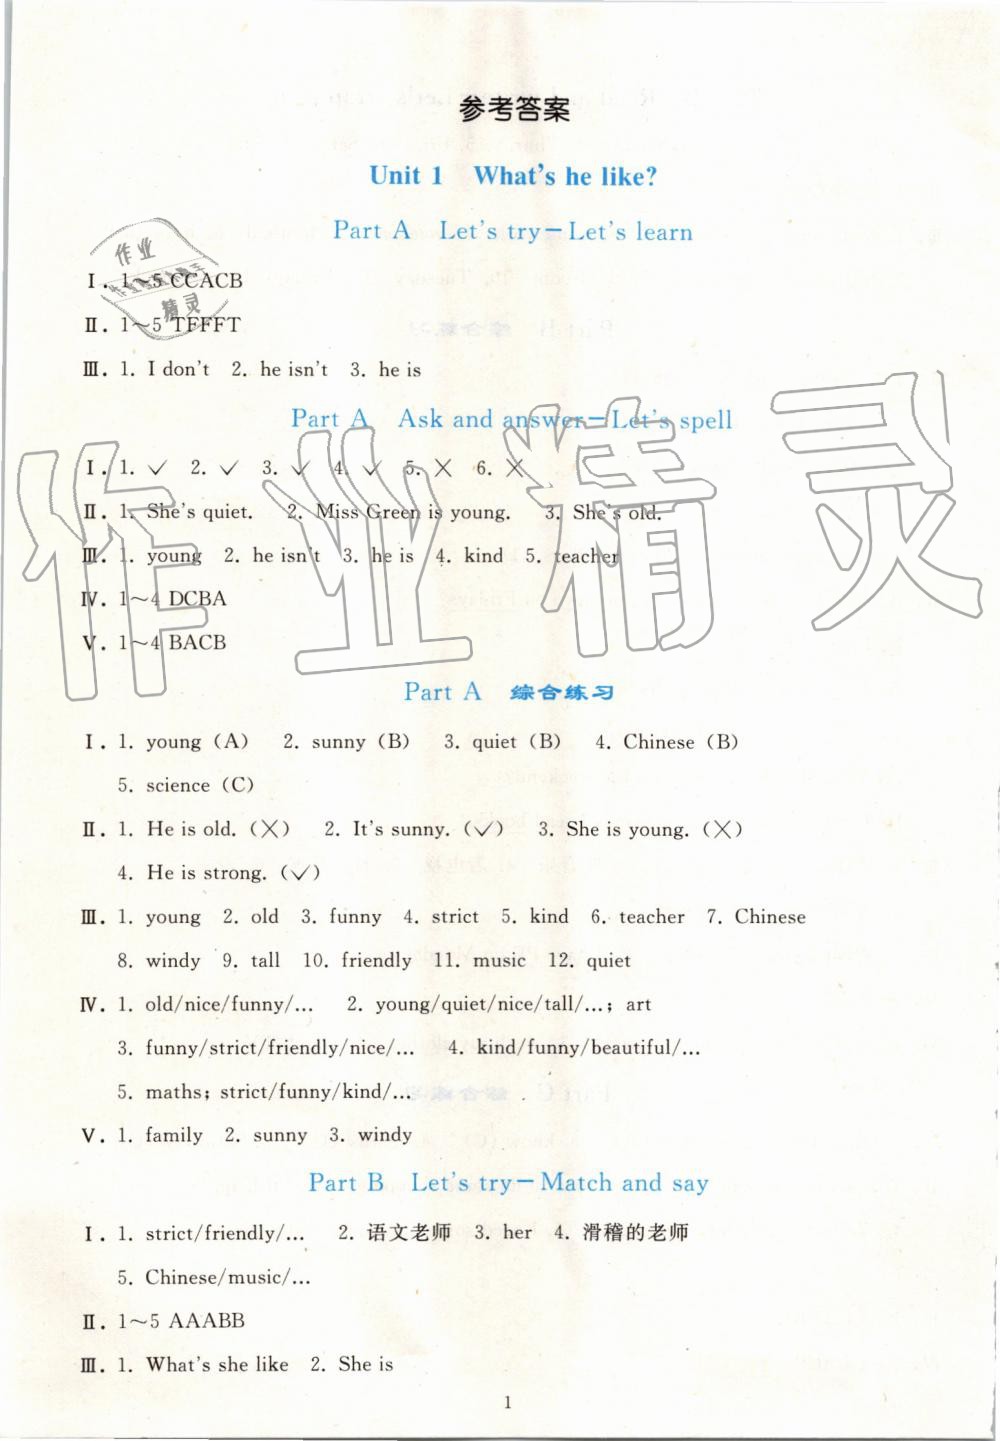 参考答案
Unit 1 What's he like?
Part A Let's try－Let's learn
Ⅰ. 1～5 CCACB
Ⅱ. 1～5 TFFFT
Ⅲ. 1. I don't 2. he isn't 3. he is
Part A Ask and answer－Let's spell
Ⅰ. 1. ✓ 2. ✓ 3. ✓ 4. ✓ 5. ╳ 6. ╳
Ⅱ. 1. She's quiet. 2. Miss Green is young. 3. She's old.
Ⅲ. 1. young 2. he isn't 3. he is 4. kind 5. teacher
Ⅳ. 1～4 DCBA
Ⅴ. 1～4 BACB
Part A 综合练习
Ⅰ. 1. young (A) 2. sunny (B) 3. quiet (B) 4. Chinese (B)
5. science (C)
Ⅱ. 1. He is old. (╳) 2. It's sunny. (✓) 3. She is young. (╳)
4. He is strong. (✓)
Ⅲ. 1. young 2. old 3. funny 4. strict 5. kind 6. teacher 7. Chinese
8. windy 9. tall 10. friendly 11. music 12. quiet
Ⅳ. 1. old/nice/funny/… 2. young/quiet/nice/tall/…; art
3. funny/strict/friendly/nice/… 4. kind/funny/beautiful/…
5. maths; strict/funny/kind/…
Ⅴ. 1. family 2. sunny 3. windy
Part B Let's try－Match and say
Ⅰ. 1. strict/friendly/… 2. 语文老师 3. her 4. 滑稽的老师
5. Chinese/music/…
Ⅱ. 1～5 AAABB
Ⅲ. 1. What's she like 2. She is
1
作业
精灵
作业精灵